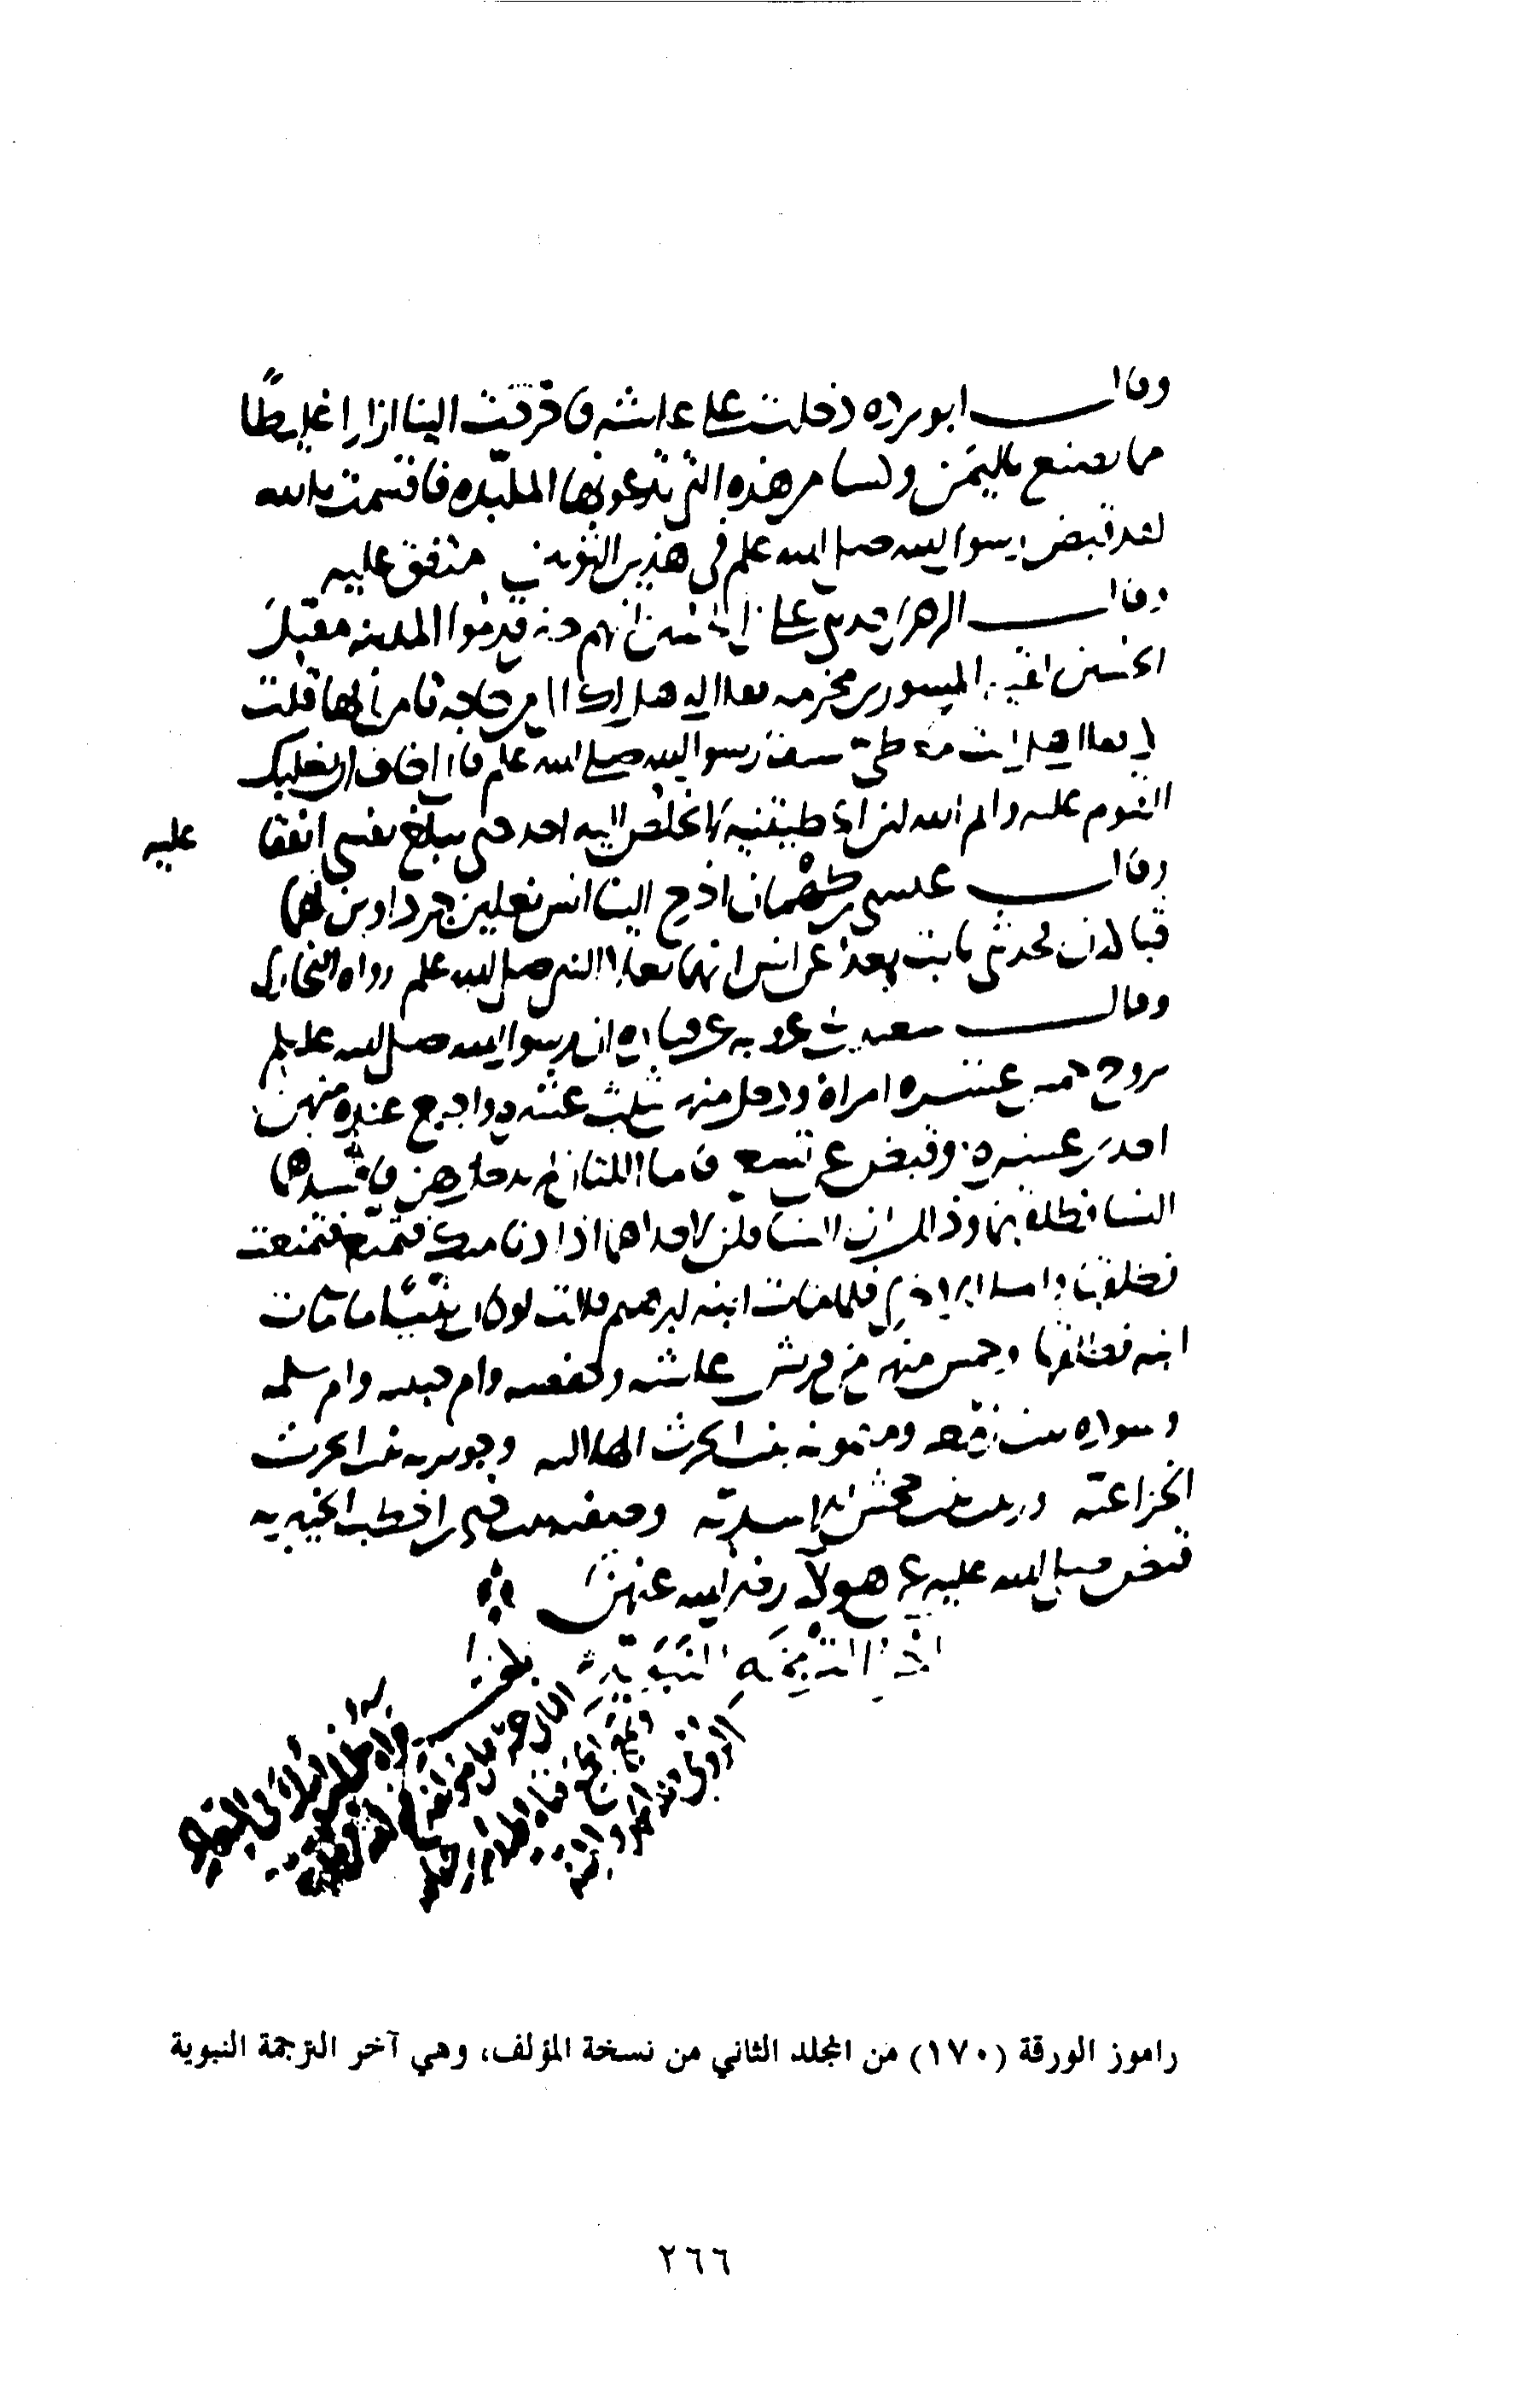 وقال ابو برده دخلت على عائشه فاخرجت الينا ازارا غليظًا
مما يصنع باليمن وكسا من هذه التي تدعونها الملبده فاقسمت بالله
لقد قبض رسول الله صلى الله علم في هذين الثوبين متفق عليه
وقال الزهري حدثني علي بن الحسين انهم حين قدموا المدينه مقتل
الحسين لقيه المسور بن مخرمه فقال له هل لك الي من حاجه تامرني بها قلت
لا فقال هل انت معطي سيف رسول الله صلى الله علم فاني اخاف ان يغلبك
القوم عليه وايم الله لئن اعطيتنيه لا يخلص اليه احد حتى يبلغ نفسي اتفقا عليه
وقال عيسى بن طهمان اخرج الينا انس نعلين جرداوين لهما
قبالان فحدثني ثابت بعد عن انس انهما نعلا النبي صلى الله علم رواه البخاري
وقال سعيد بن ابي عروبه عن قتاده ان رسول الله صلى الله عليه
تزوج خمس عشره امراة ودخل منهن بثلث عشره واجتمع عنده منهن
احدى عشره وقبض عن تسع فاما اللتان لم يدخل بهن فافسدهما
النسا فطلقهما وذلك ان النسا قلن لاحداهما اذا دنا منك فتمنعي فتمنعت
فطلقها واما الاخرى فلما مات ابنه ابرهيم قالت لو كان نبيًا ما مات
ابنه فطلقها وخمس منهن من قريش عائشه وحفصه وام حبيبه وام سلمه
وسوده بنت زمعه وميمونه بنت الحرث الهلاليه وجويريه بنت الحرث
الخزاعية وزينب بنت جحش الاسدية وصفيه بنت حيي بن اخطب الخيبريه
قبض صلى الله عليه عن هولا رضي الله عنهن
اخر الترجمة النبوية
راموز الورقة (١٧٠) من المجلد الثاني من نسخة المؤلف، وهي آخر الترجمة النبوية
٢٦٦